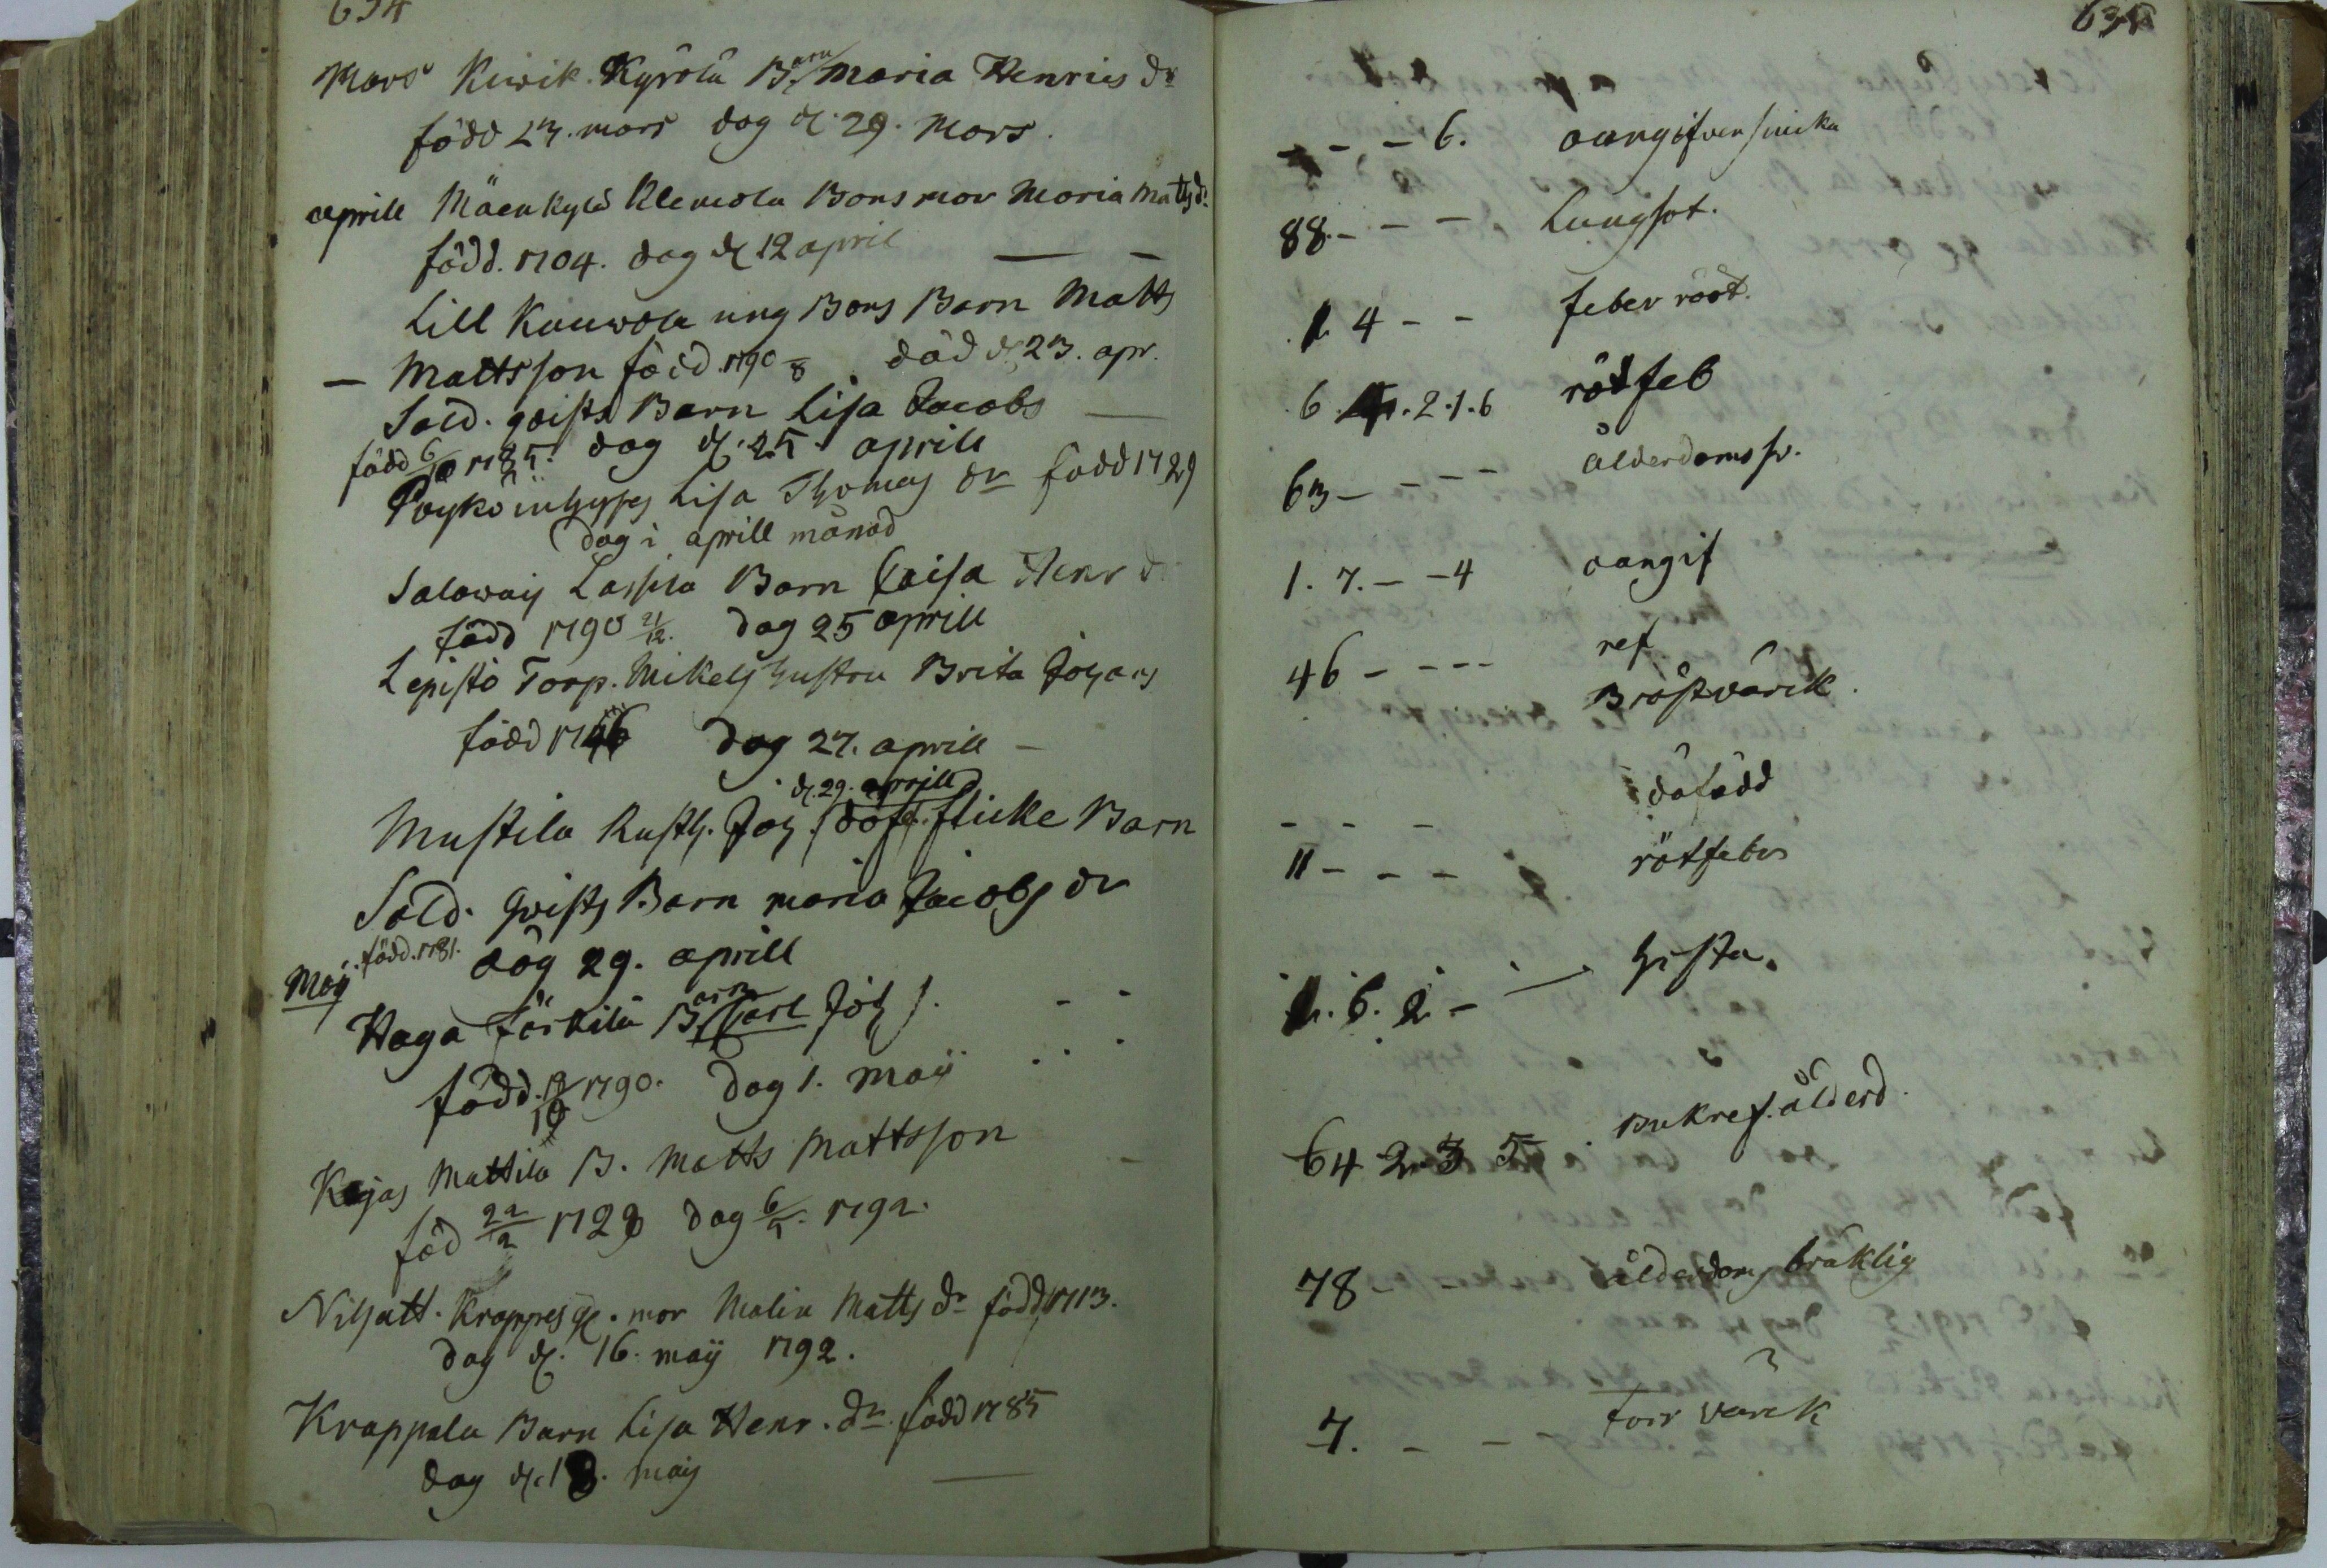 634
Mars Kiwik. Kyrölä B. Barn Maria Henrics dr
född 23. mars dog d. 29. Mars.
aprill Mäenkylä Klemola Bons mor Maria Matts dr
född. 1704. dog d 12 april
Lill Kauwola ung Bons Barn Matts
— Mattsson född. 1790 död d. 23. apr.
Sold. qvists Barn Lisa Jacobs —
född 6/10 1785. dog d. 25. aprill
Pöykö inhyses Lisa Thomas dr född 1729
dog i aprill månad
Salowaij Lassila Barn Caisa Henr d.
född 1790 21/12. dog 25 aprill
Lepistö Torp. Mikels hustru Brita Johans
född 1746 dog 27. aprill —
d. 29. aprill
Mustila Rusth. Joh. döf. flicke Barn
Sold. Qvists Barn maria Jacobs dr
född. 1781. dög 29. aprill
Maij
Haga Förkilä B. Barn Carl Joh s.
född. 1790. Dog 1. maij
Kojas Mattila B. Matts Mattsson
föd 22/2 1728 dog 6/5. 1792.
Nisatt. Krappes gl. mor Malin Matts dr född 1713.
dog d. 16. maij 1792.
Krappala Barn Lisa Henr. dr. född 1785
dog d. 18. maij —
635
- - - 6. oangifven siuka
88. - - - Lungsot.
1 4 - - feber rööt.
6. 2. 1. 6 rötfeb
63 - - - - ålderdoms sv.
1. 7. - - 4 oangif
46 - - - - ref
Bröstvärck.
- - - döfödd
11 - - - rötfeber
1. 6. 2 - — hosta.
64 2 3 5 . Bukref. ålderd.
78 - - ålderdoms bräklig
7. - - torr värck